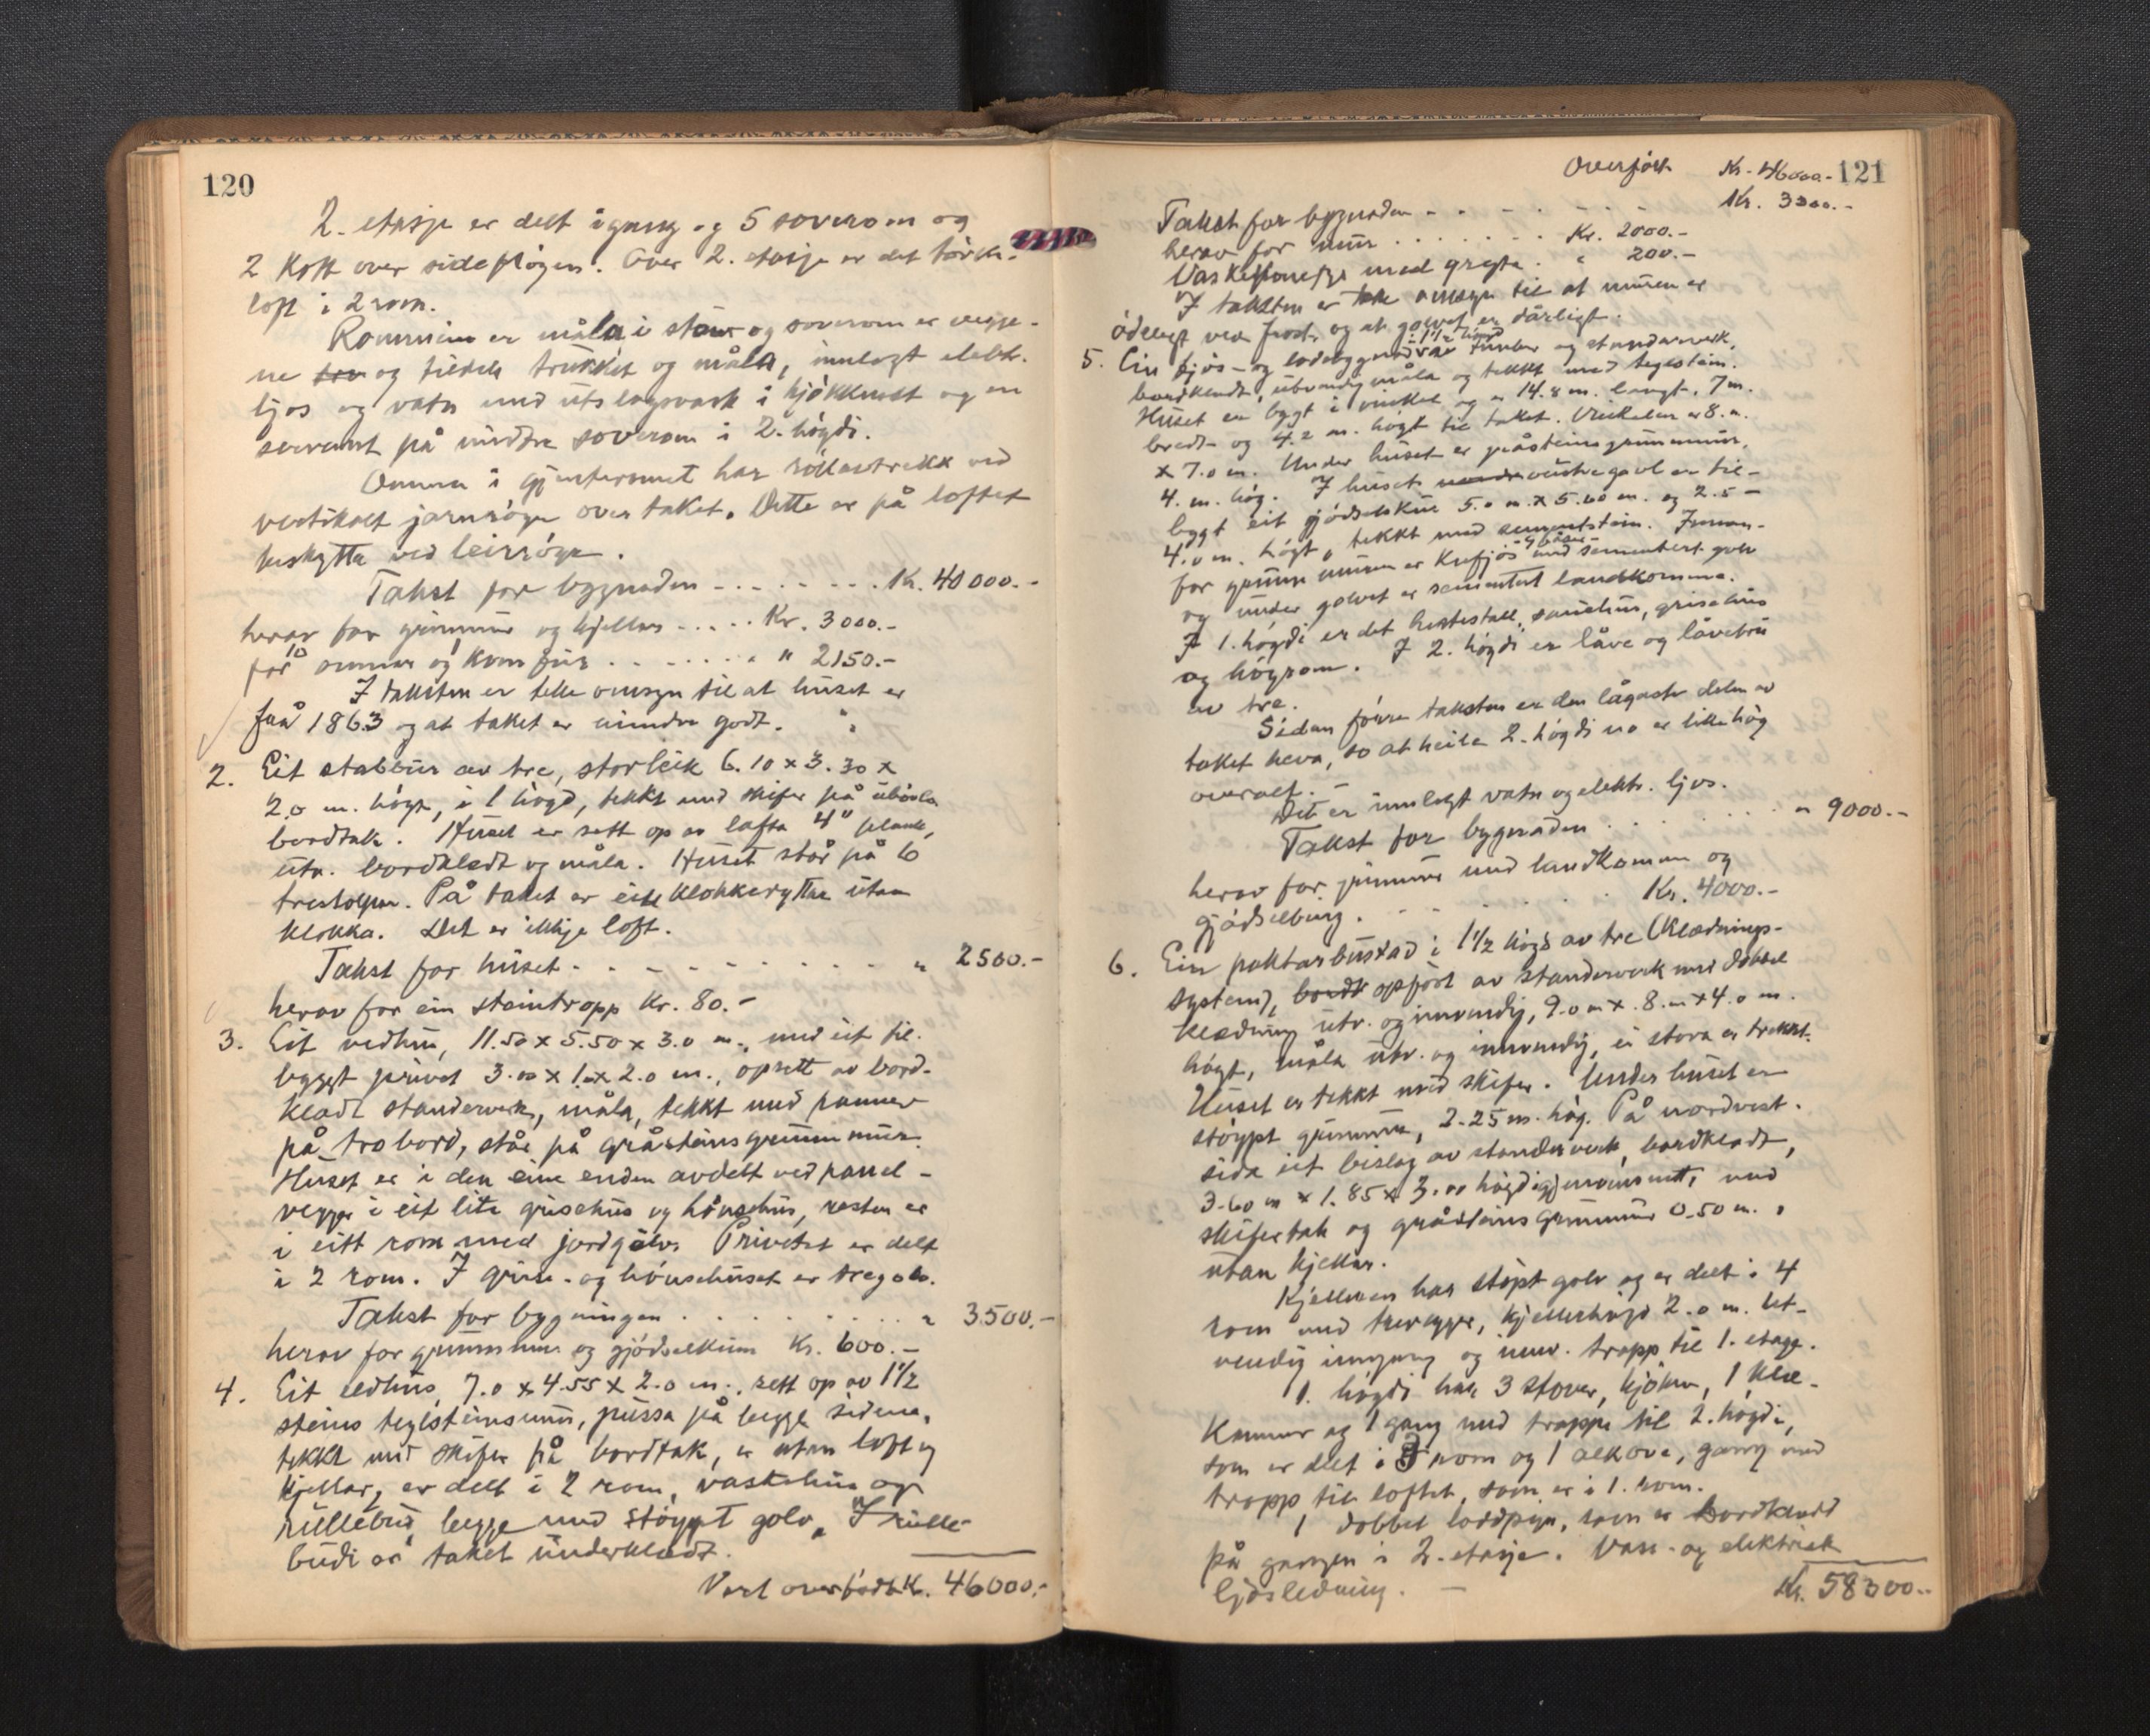 120
2. etasje er delt i gang og 5 soverom og
2 kott over sidefløgen. Over 2. etasje er det tørk-
loft i 2 rom.
Rommene er måla i stover og soverom er vegge-
ne og tildels trukket og måla, innlagt elektr.
ljos og vatn med utslagsvask i kjøkkenet og en
servant på midtre soverom i 2. høgdi.
Omnen i gjesterommet har
vertikalt jarnrøyr over taket. Dette er på loftet
beskytta ved leirrøyr.
Takst for bygnaden - - - - - - - Kr. 40000.-
herav for grunnmur og kjellar - . . . . Kr. 3000.-
for 10 omnar og komfur . . . . . . . " 2150.-
I taksten er teke omsyn til at huset er
frå 1863 og at taket er mindre godt.
2. Eit stabbur av tre, storleik 6.10 x 3.30 x
2.0 m. høgt, i 1 høgd, tekkt med skifer på
bordtak. Huset er sett op av lafta 4" plank,
utv. bordkledt og måla. Huset står på 6
trestolpar. På taket er eit klokkeryttar utan
klokka. Det er ikkje loft.
Takst for huset - . - - - - - - - " 2500.-
herav for ein steintropp Kr. 80.-
3. Eit vedhus, 11.50 x 5.50 x 3.0 m., med eit til-
bygget privet 3.00 x 1.0 x 2.0 m., opsett av bord-
kledt standerverk, måla, tekkt med panner
på trobord, står på gråsteinsgrunnmur.
Huset er i den eine enden avdelt ved panel-
vegger i eit lite grisehus og hønsehus, resten er
i eitt rom med jordgolv. Privetet er delt
i 2 rom. I grise- og hønsehuset er tregolv.
Takst for bygningen . . . . . . . . " 3500.-
herav for grunnmur og gjødselkum Kr. 600.-
4. Eit eldhus, 7.0 x 4.55 x 2.0 m., sett op av 1 1/2
steins teglsteinsmur, pussa på begge sidene,
tekkt med skifer på bordtak, er utan loft og
kjellar, er delt i 2 rom, vaskehus og
rullebud, begge med støypt golv. I rulle-
budi er taket underkledt.
Vert overført Kr. 46000.-
Overført Kr. 46000.- 121
Takst for bygnaden - - - - - - - Kr. 3300.-
herav for mur . . . . . . . Kr. 2000.-
Vaskehonefyr med gryta . " 200.-
I taksten er teke omsyn til at muren er
ødelagt ved frost og at golvet er dårlegt.
5. Ein fjøs- og lødebygnad i 1 1/2 høgd av timber og standerverk,
bordkledt, utvendig måla og tekkt med teglstein.
Huset er bygt i vinkel og er 14.8 m. langt, 7 m.
bredt og 4.2 m. høgt til taket. Vinkelen er 8. m.
x 7.0 m. Under huset er gråsteinsgrunnmur,
4. m. høg. I huset vestre gavl er til-
bygt eit gjødselskur 5.0 m. x 5.60 m. og 2.5-
4.0 m. høgt, tekkt med sementstein. Innan-
for grunnmuren er kufjøs med sementert golv
og under golvet er sementert landkomme.
I 1. høgdi er det hestestall, sauehus, grisehus
og høyrom. I 2. høgdi er låve og låvebru
av tre.
Sidan førre taksten er den lågaste delen av
taket heva, so at heile 2. høgdi no er like høg
overalt. -
Det er innlagt vatn og elektr. ljos.
Takst for bygnaden . . . . . . . " 9000.-
herav for grunnmur med landkommen og
gjødselbing . . . . . . . Kr. 4000.-
6. Ein paktarbustad i 1 1/2 høgd av tre (Klædnings-
system), opført av standerverk med dobbel
klædning utv. og innvendig, 9.0 m x 8. m x 4.0 m.
høgt, måla utv. og innvendig, ei stova er trekkt.
Huset er tekkt med skifer. Under huset er
støypt grunnmur, 2.25 m. høg. På nordvest-
sida eit bislag av standerverk, bordkledt,
3.60 m x 1.85 x 3.00 høgd i gjennomsnitt, med
skifertak og gråsteinsgrunnmur 0.50 m.,
utan kjellar.
Kjellaren har støpt golv og er delt i 4
rom med trevegger, kjellerhøgd 2.0 m. Ut-
vendig inngang og innv. tropp til 1. etage.
1. høgdi har 3 stover, kjøken, 1 klæ-
kammer og 1 gang med tropp til 2. høgdi,
som er delt i 3 rom og 1 alkove, gang med
tropp til loftet, som er i 1. rom.
1 dobbel lordpipe, som er bordkledd
på gangen i 2. etasje. Vass- og elektrisk
ljosledning. - Kr. 58300.-